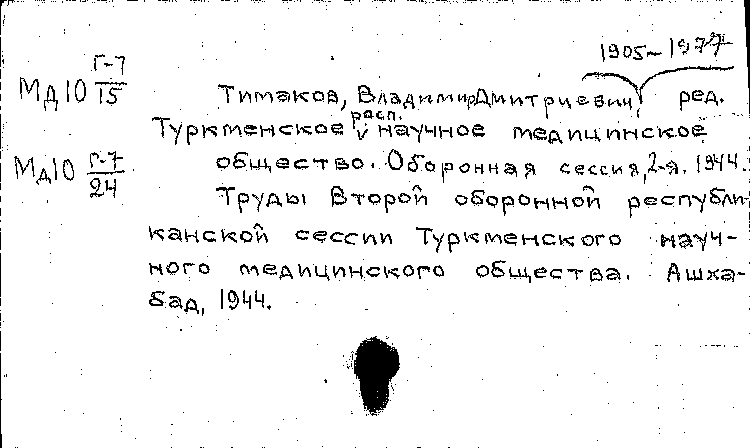 1905-1977
Мд10 Г-7/15
Тимаков, Владимир Дмитриевич, ред.
расп.
Туркменское v научное медицинское
Мд10 Г-7/24
общество. Оборонная сессия, 2-я. 1944.
Труды Второй оборонной республи-
канской сессии Туркменского науч-
ного медицинского общества. Ашха-
бад, 1944.